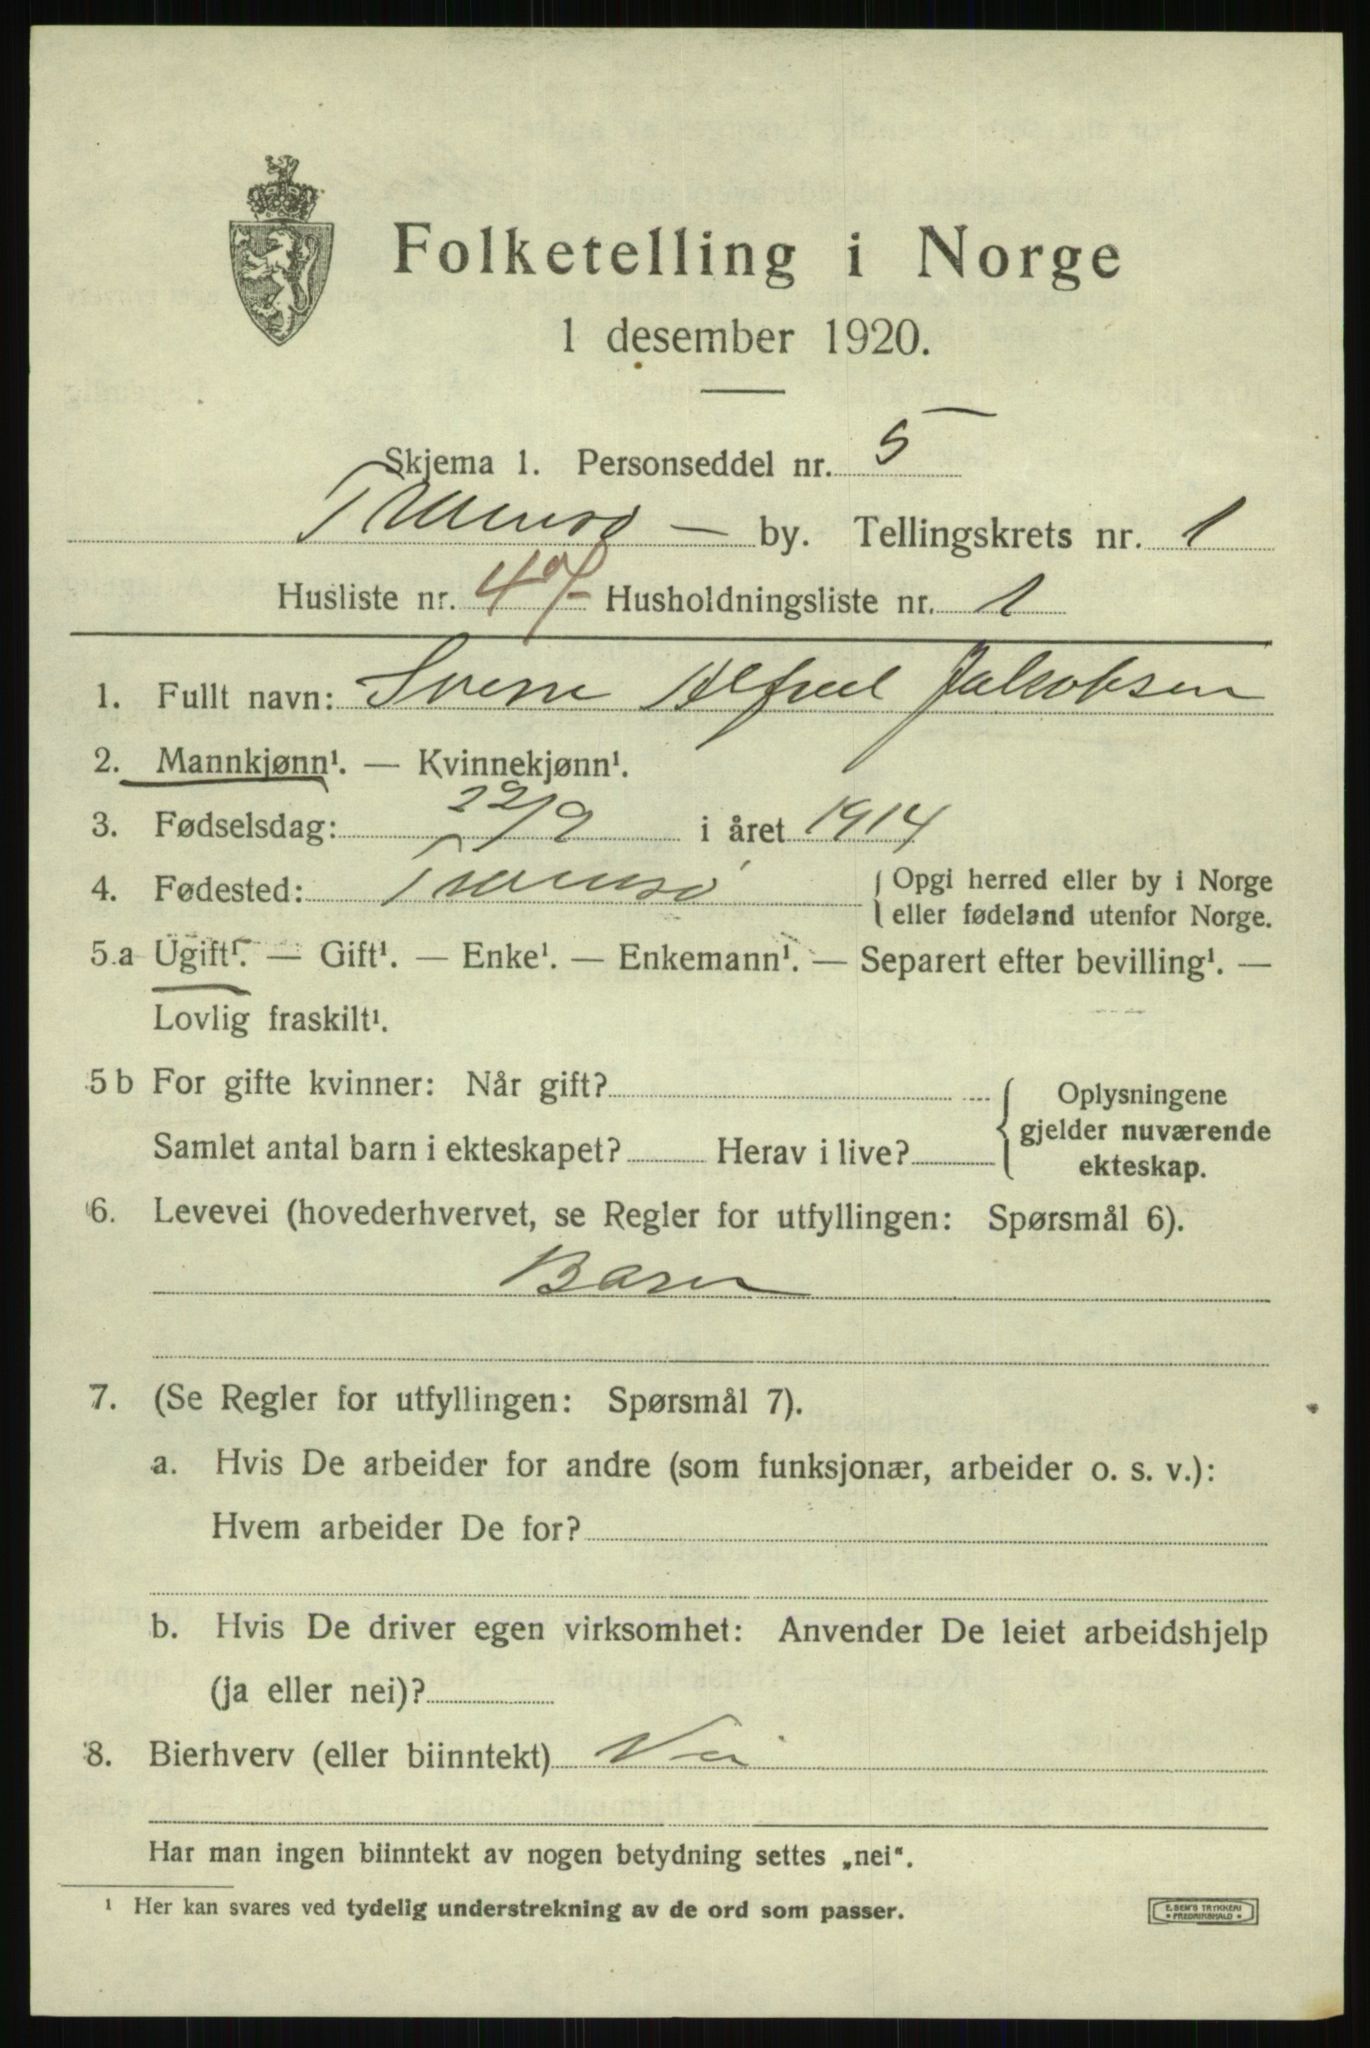 Folketelling i Norge
1 desember 1920.
Skjema 1. Personseddel nr. 5
Tromsø — by. Tellingskrets nr. 1
Husliste nr. 47 Husholdningsliste nr. 1
1. Fullt navn: Sverre Alfred Jakobsen
2. Mannkjønn¹. — Kvinnekjønn¹.
3. Fødselsdag: 22/9 i året 1914
4. Fødested: Tromsø { Opgi herred eller by i Norge
eller fødeland utenfor Norge.
5 a Ugift¹. — Gift¹. — Enke¹. — Enkemann¹. — Separert efter bevilling¹. —
Lovlig fraskilt¹.
5 b For gifte kvinner: Når gift? { Oplysningene
gjelder nuværende
Samlet antal barn i ekteskapet? Herav i live?
ekteskap.
6. Levevei (hovederhvervet, se Regler for utfyllingen: Spørsmål 6).
Barn
7. (Se Regler for utfyllingen: Spørsmål 7).
a. Hvis De arbeider for andre (som funksjonær, arbeider o. s. v.):
Hvem arbeider De for?
b. Hvis De driver egen virksomhet: Anvender De leiet arbeidshjelp
(ja eller nei)?
8. Bierhverv (eller biinntekt) Nei
Har man ingen biinntekt av nogen betydning settes „nei“.
¹ Her kan svares ved tydelig understrekning av de ord som passer.
E. SEM'S TRYKKERI
• FREDRIKSHALD •